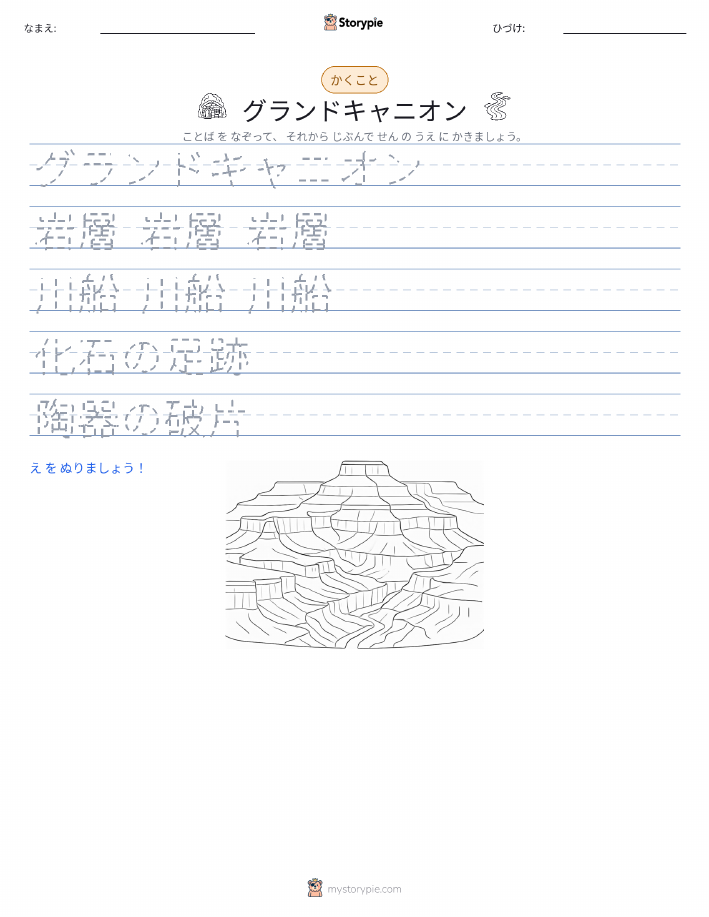 なまえ:
Storypie
ひづけ:
かくこと
グランドキャニオン
ことば を なぞって、 それから じぶんで せん の うえ に かきましょう。
グランドキャニオン
岩層 岩層 岩層
川船 川船 川船
化石の足跡
陶器の破片
え を ぬりましょう！
mystorypie.com